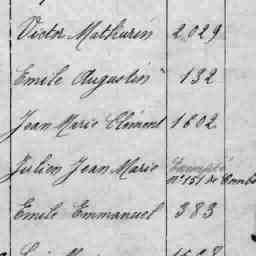 Victor Mathurin 2,029
Emile Augustin 132
Jean Marie Clément 1602
Julien Jean Marie Exempté
n° 151 de Combo
Emile Emmanuel 383